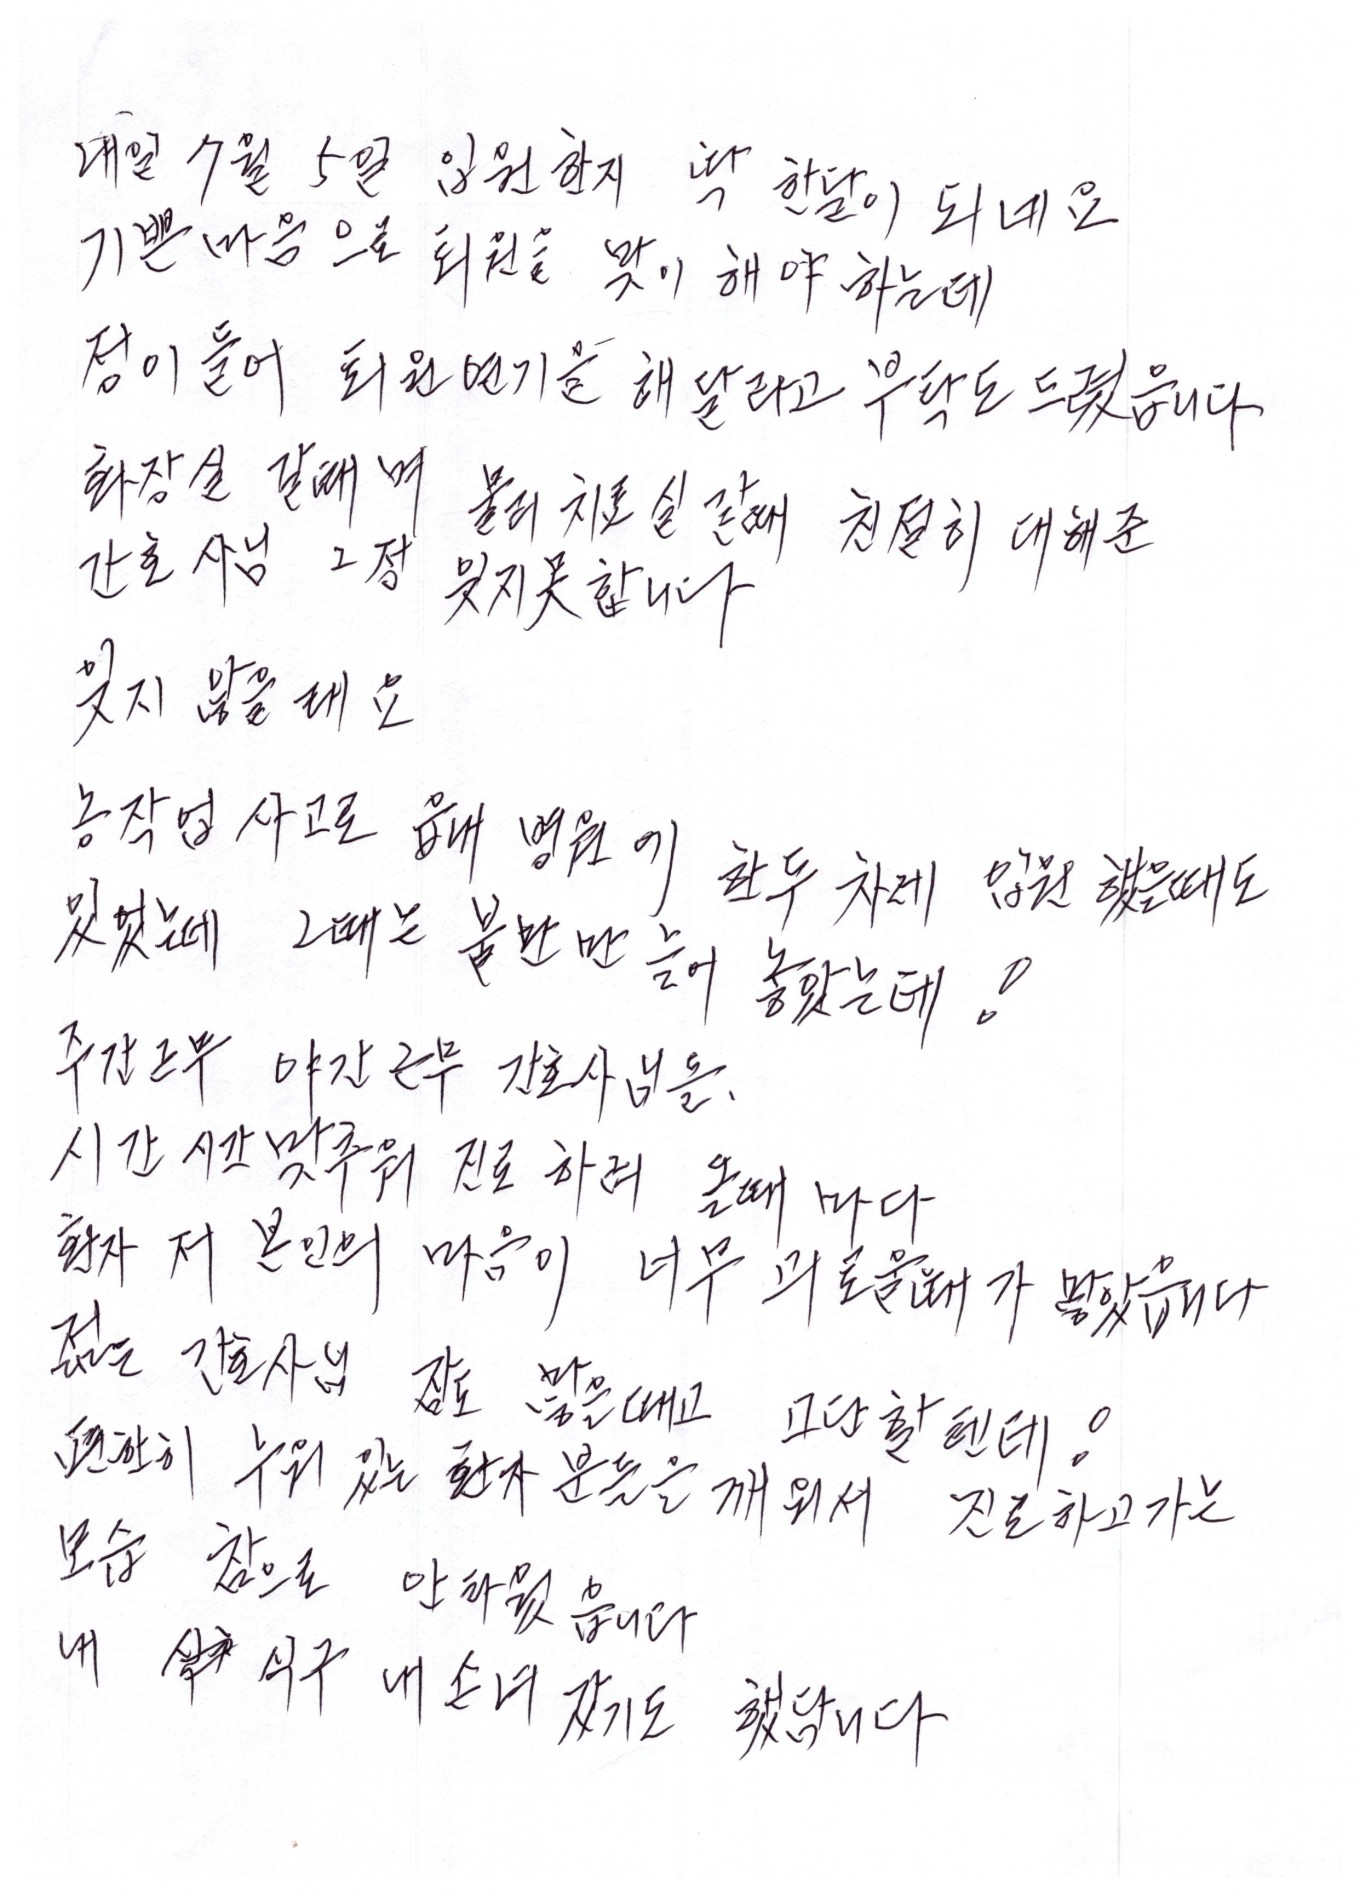 내일 7월 5일 입원한지 딱 한달이 되네요
기쁜 마음으로 퇴원을 맞이 해야 하는데
정이들어 퇴원연기을 해달라고 부탁도 드렸읍니다
화장실 갈때며 물리치료실 갈때 친절히 대해준
간호사님 그정 잊지못합니다
잊지 않을래요
농작업 사고로 읍내 병원에 한두차례 입원 했을때도
있었는데 그때는 불만만 늘어 놓았는데!
주간근무 야간근무 간호사님들.
시간 시간 맞추워 진료하려 올때 마다
환자 저 본인의 마음이 너무 괴로울때가 많았읍니다
젊은 간호사님 잠도 많을때고 고단할텐데!
편한히 누워 있는 환자분들을 깨워서 진료하고가는
모습 참으로 안타웠읍니다
내 식구 내 손녀 같기도 했답니다